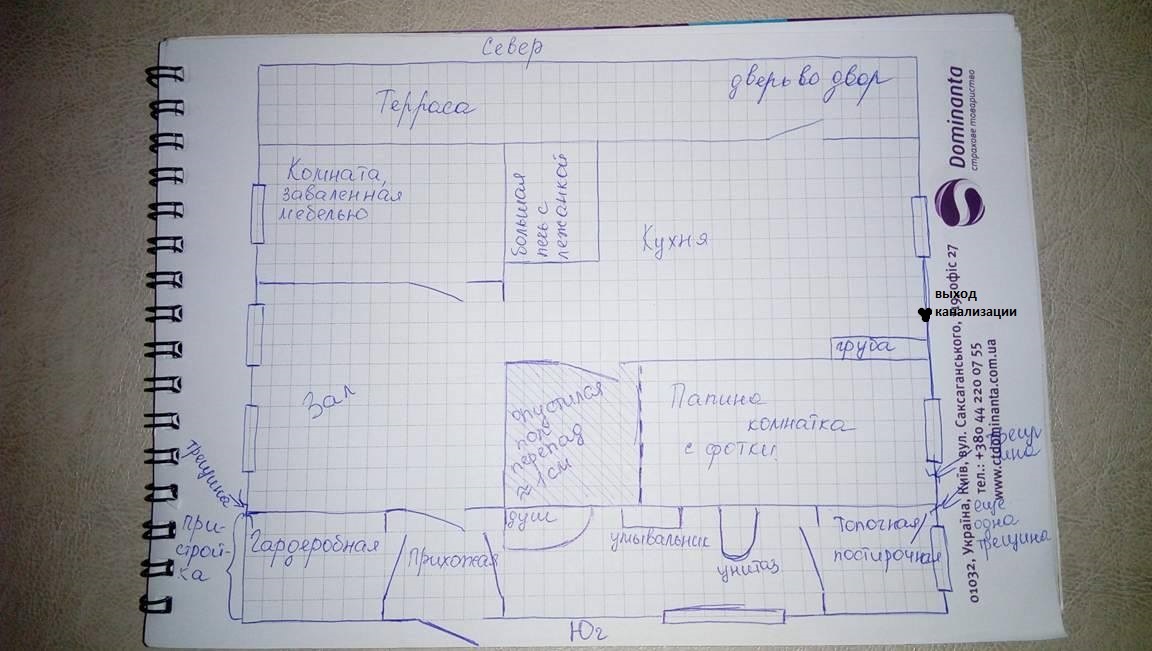 Север
Терраса
дверь во двор
Комната,
заваленная
мебелью
большая
печь с
лежанкой
Кухня
выход
канализации
груба
Зал
опустился
пол
перепад
≈ 1 см
Папина
комнатка
с фотки
трещина
трещина
еще
одна
трещина
при-
строй-
ка
Гардеробная
Прихожая
душ
умывальник
унитаз
Топочная/
постирочная
Юг
Dominanta
страхове товариство
01032, Україна, Київ, вул. Саксаганського, офіс 27
тел.: +380 44 220 07 55
www.ctdominanta.com.ua